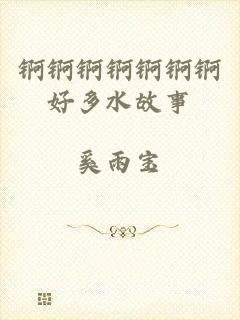 锕锕锕锕锕锕锕
好多水故事
奚雨宝